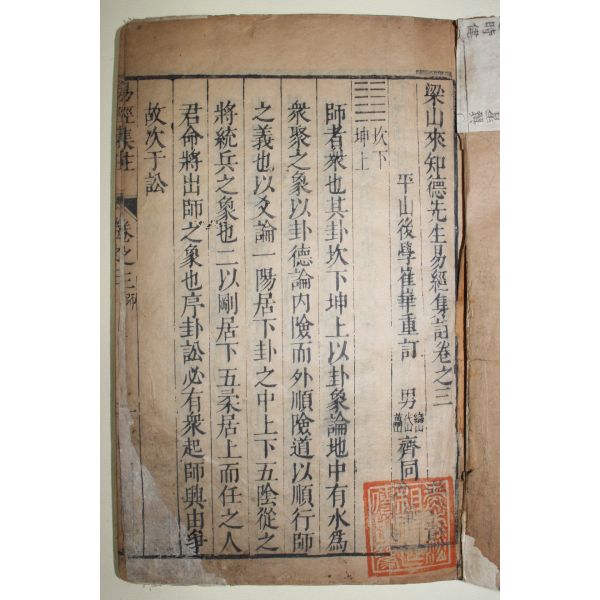 梁山來知德先生易經集註卷之三
平山後學崔華重訂 男 岱山 齊同
坎下
坤上
師者衆也其卦坎下坤上以卦象論地中有水為
衆聚之象以卦德論內險而外順險道以順行師
之義也以爻論一陽居下卦之中上下五陰從之
將統兵之象也二以剛居下五柔居上而任之人
君命將出師之象也序卦訟必有衆起師興由爭
故次于訟
易經集註 卷之三 師